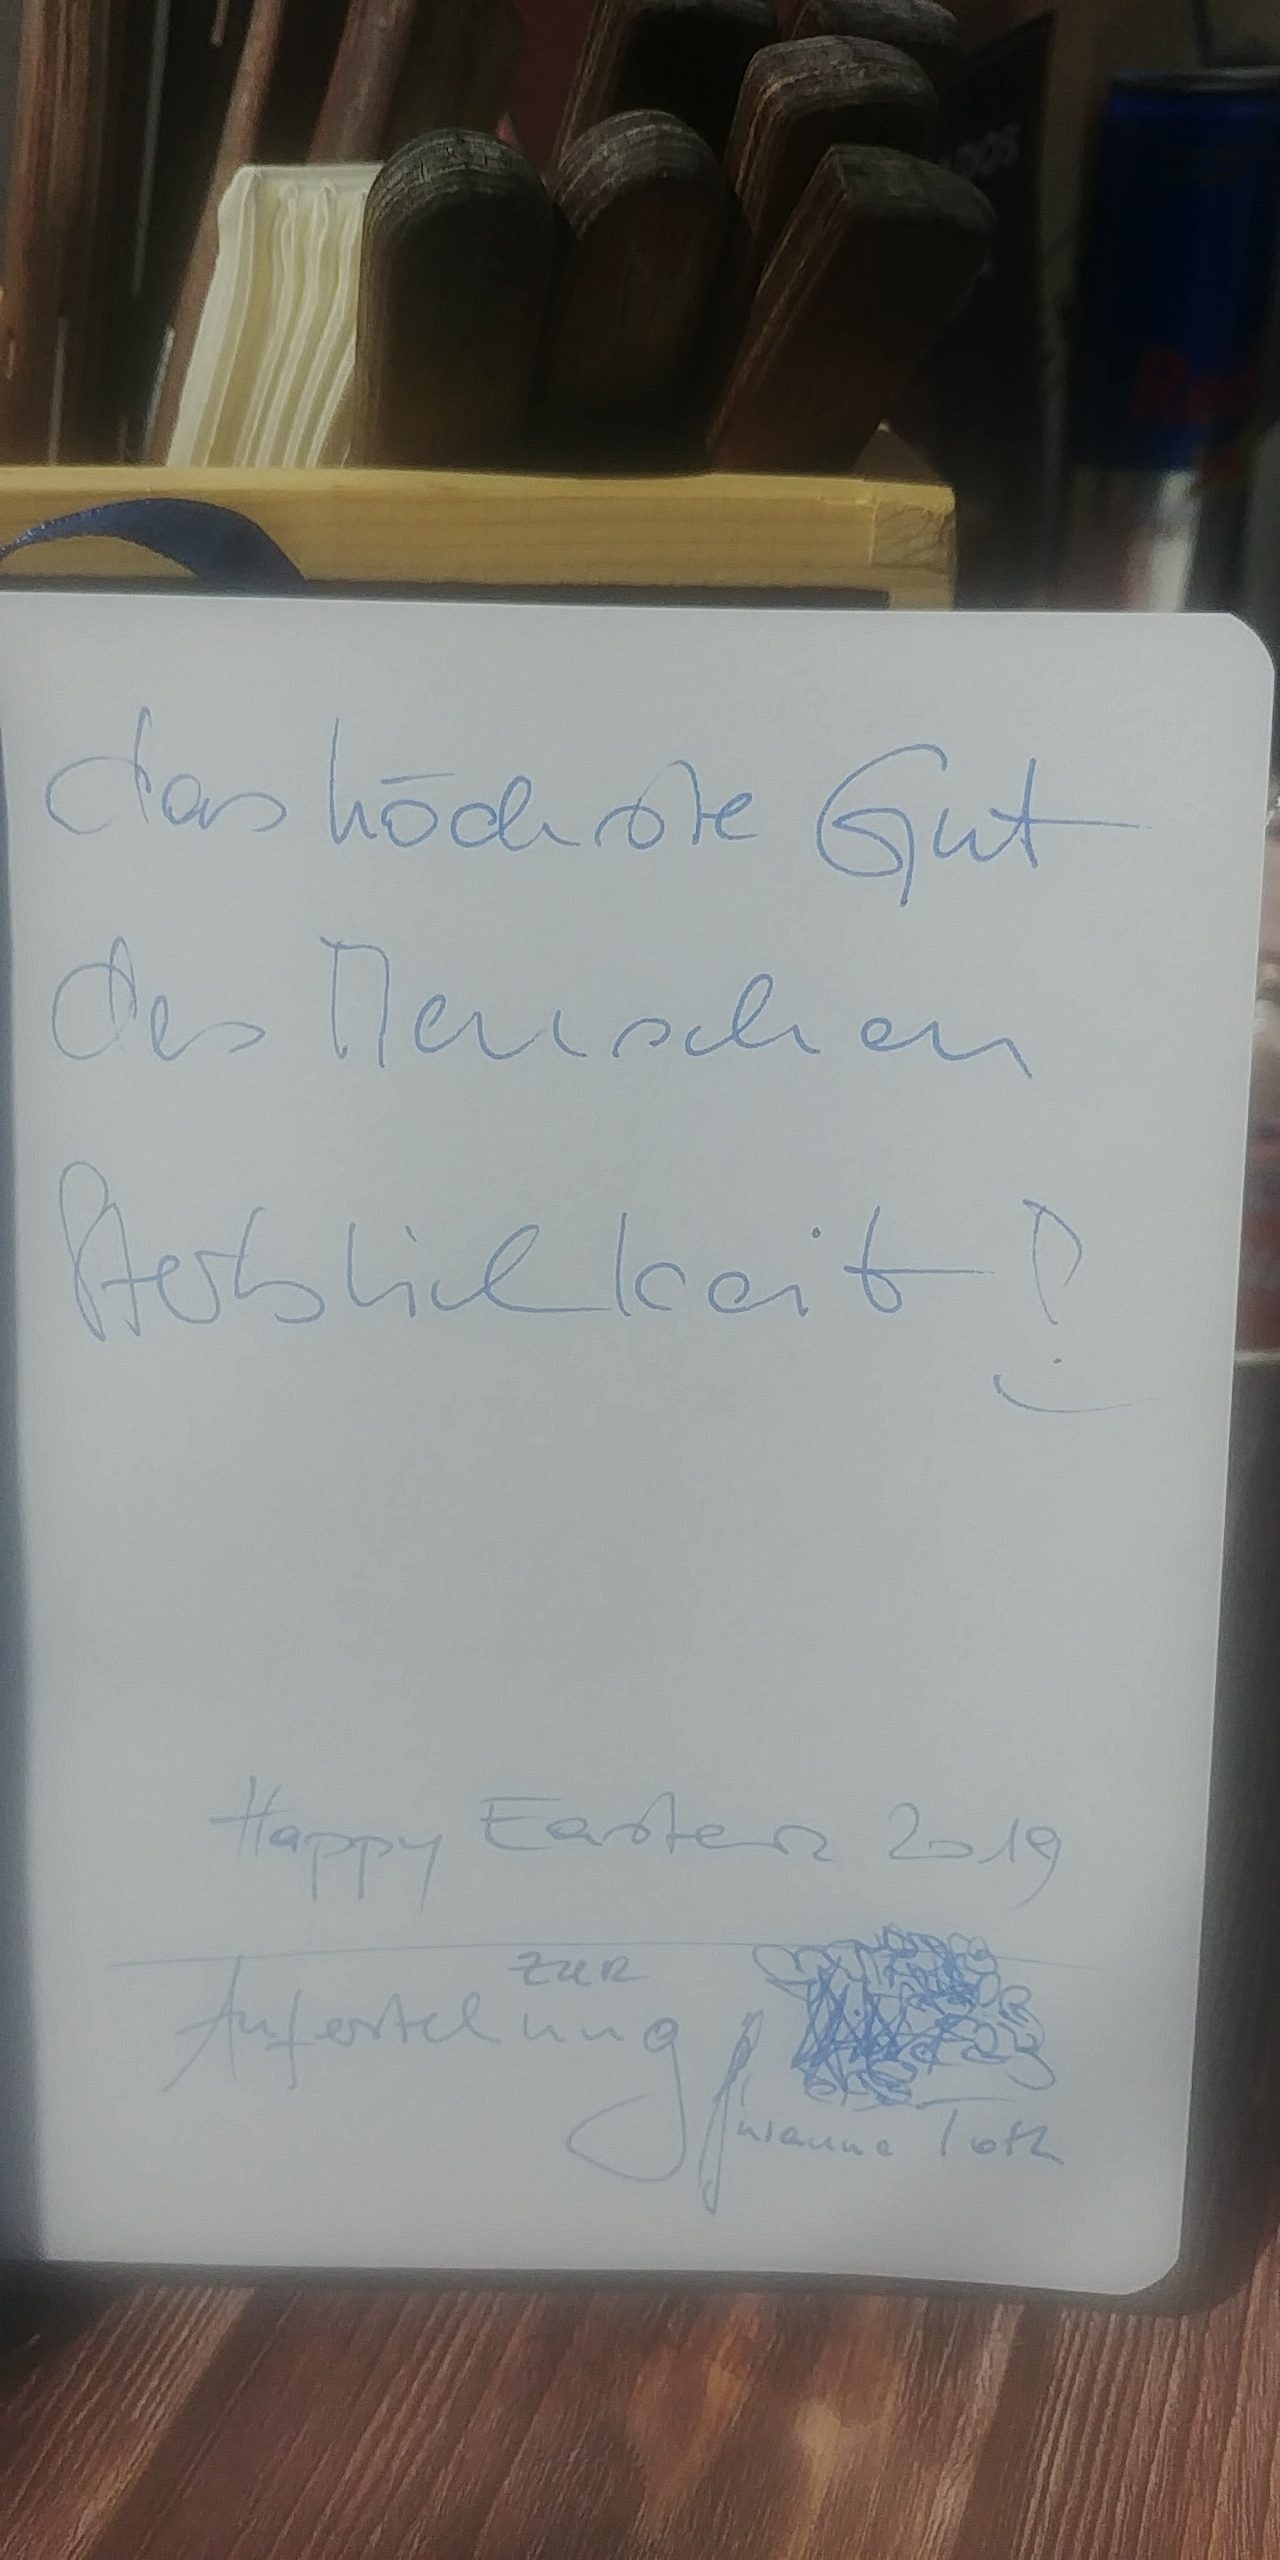 Red
das höchste Gut
des Menschen
Sterblichkeit!
Happy Easter 2019
zur
Auferstehung
Susanne Toth